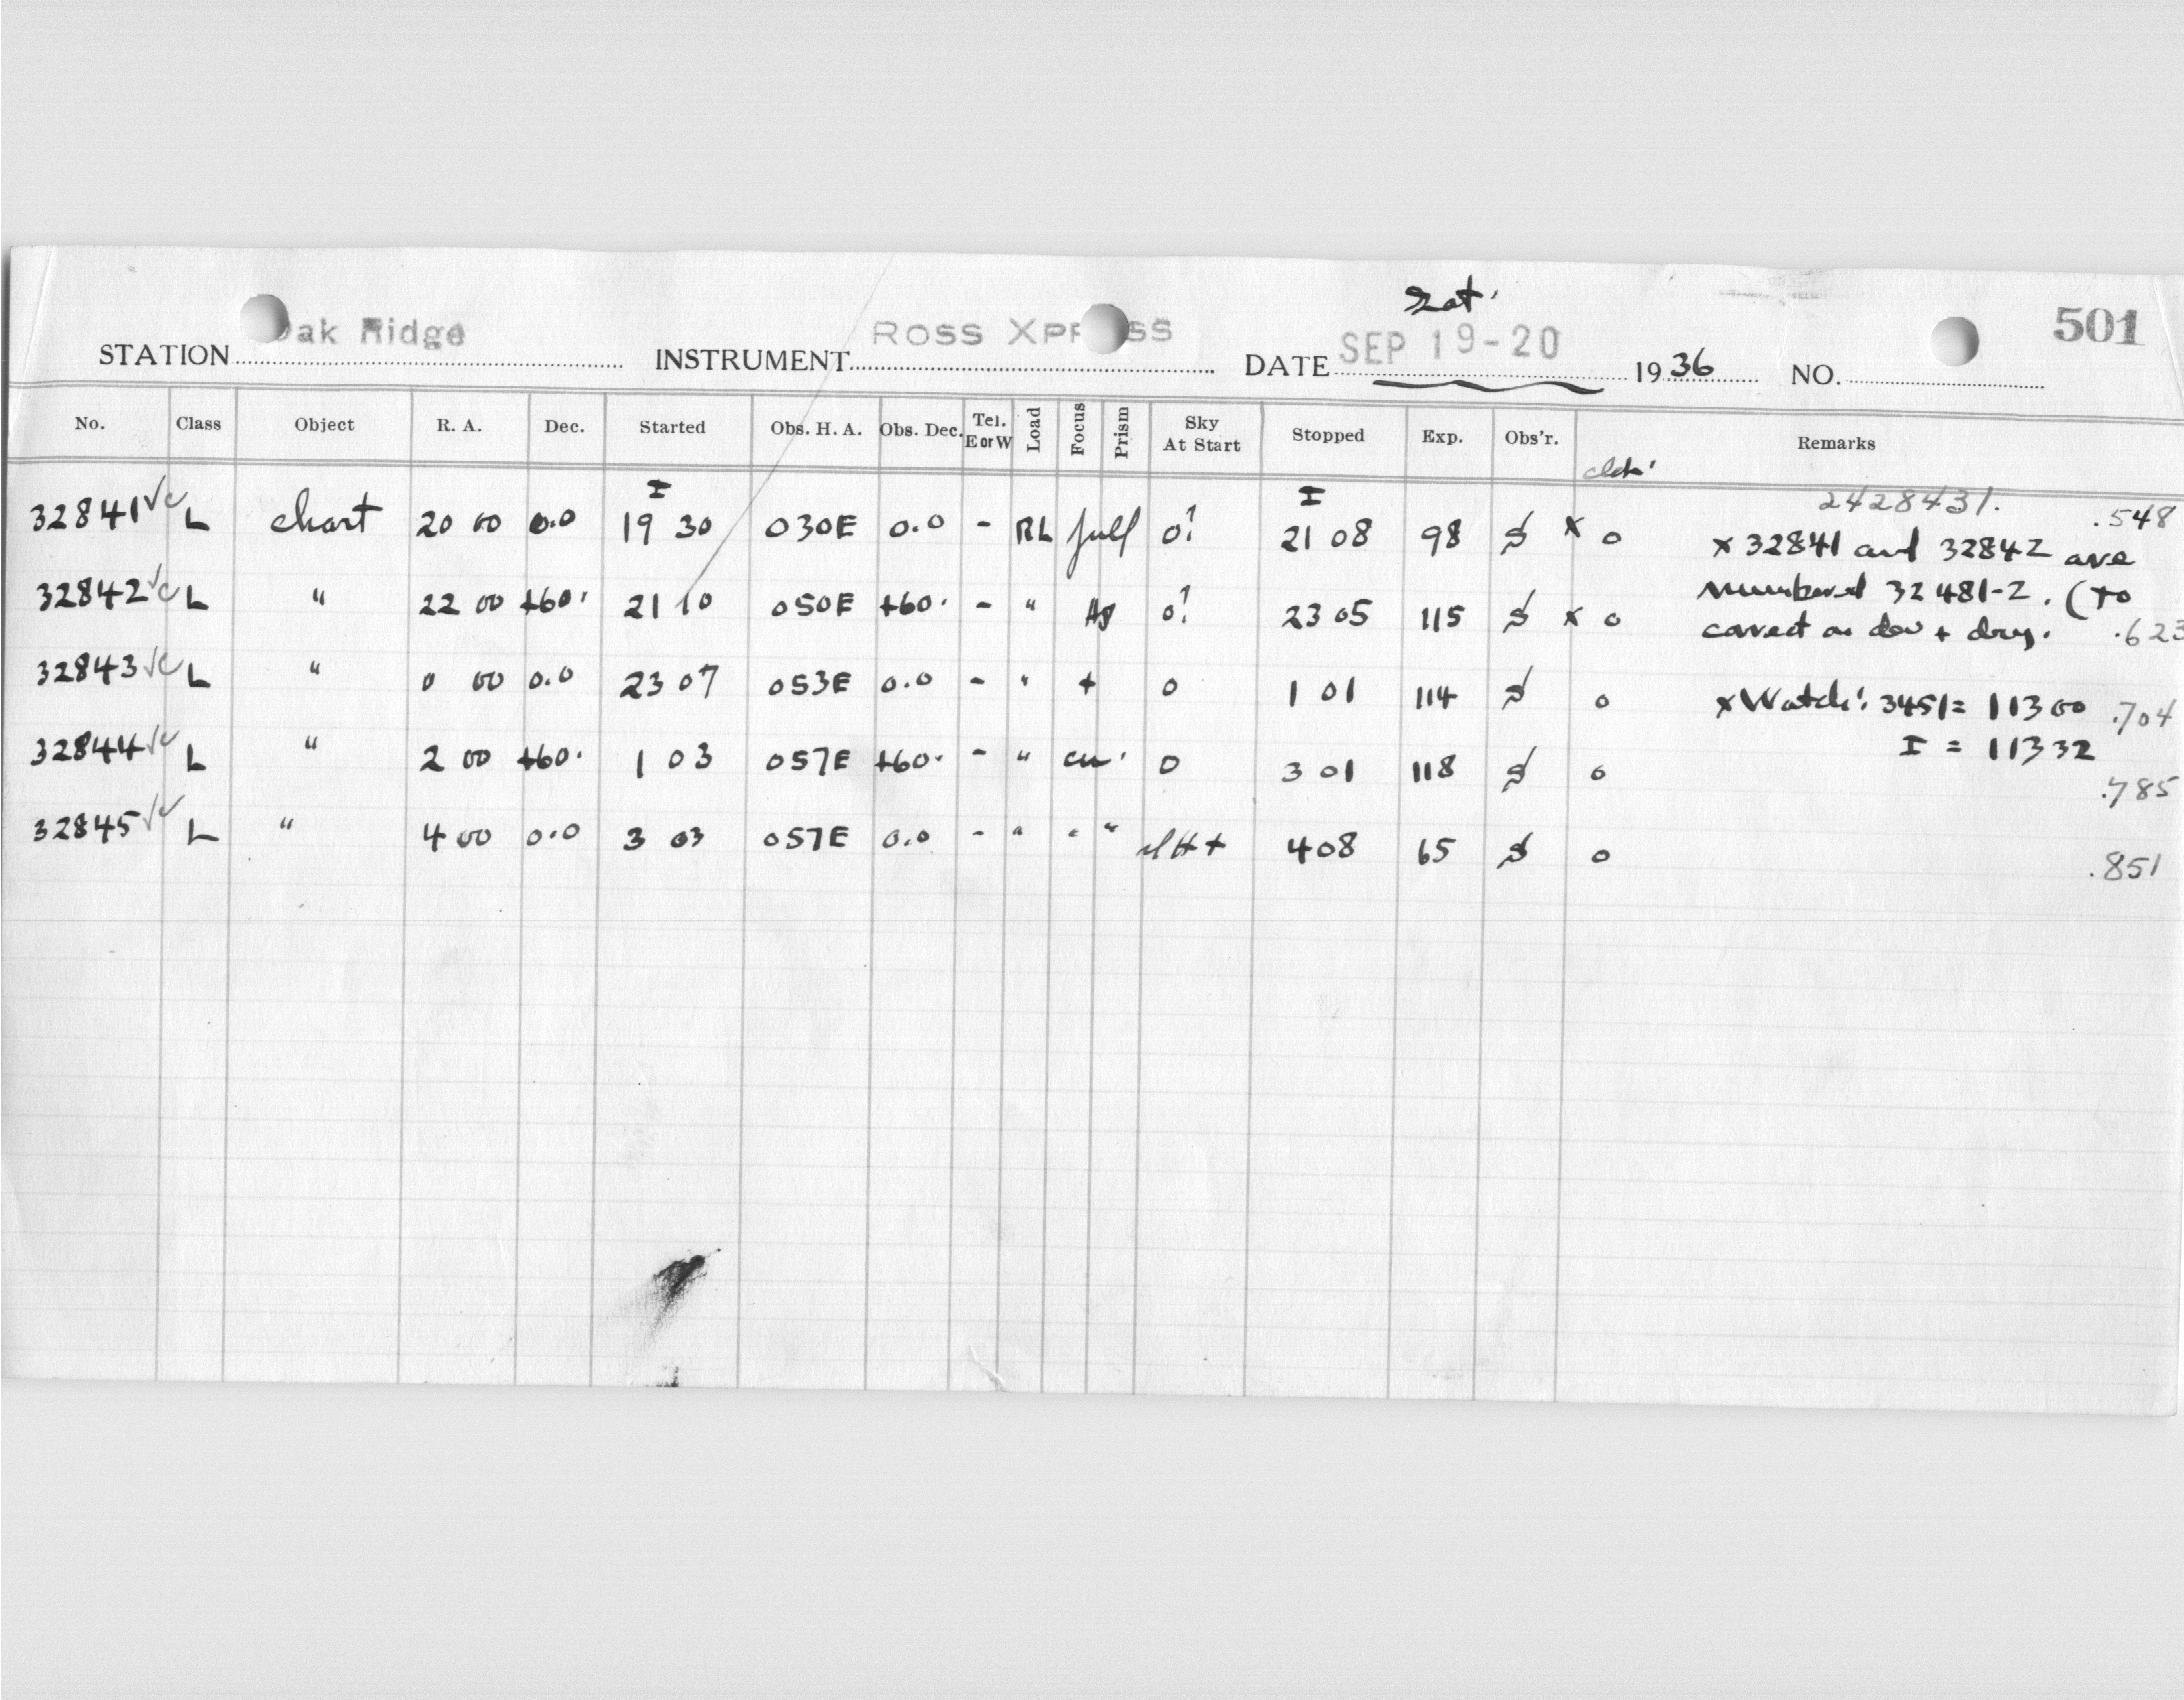 Sat.
STATION Oak Ridge INSTRUMENT ROSS XPRESS DATE SEP 19-20 1936 NO. 501
No. Class Object R. A. Dec. Started Obs. H. A. Obs. Dec. Tel. E or W Load Focus Prism Sky At Start Stopped Exp. Obs'r. Remarks
I I 2428431.
32841 √c L chart 20 00 0.0 19 30 030E 0.0 - RL full 0! 21 08 98 x 0 x 32841 and 32842 are .548
32842 √c L " 22 00 +60. 21 10 050E +60. - " 0! 23 05 115 x 0 numbered 32481-2. (To
correct on dev + dry. .623
32843 √c L " 0 00 0.0 23 07 053E 0.0 - " + 0 1 01 114 0 x Watch: 3451 = 11300 .704
I = 11332
32844 √c L " 2 00 +60. 1 03 057E +60. - " 0 3 01 118 0 .785
32845 √c L " 4 00 0.0 3 03 057E 0.0 - " " " 4 08 65 0 .851